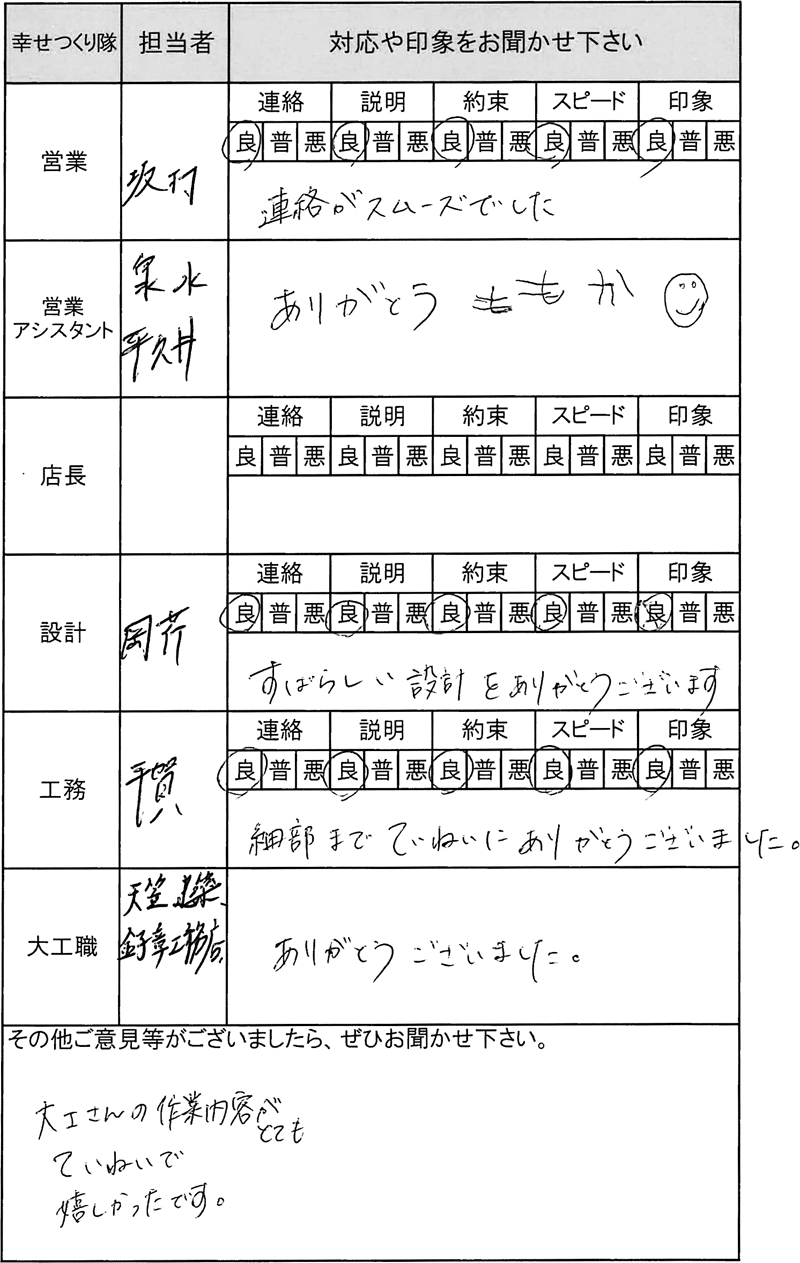 幸せつくり隊 担当者 対応や印象をお聞かせ下さい
連絡 説明 約束 スピード 印象
良 普 悪 良 普 悪 良 普 悪 良 普 悪 良 普 悪
営業
坂村
連絡がスムーズでした
泉水
営業
アシスタント
ありがとう ももか
平久井
連絡 説明 約束 スピード 印象
良 普 悪 良 普 悪 良 普 悪 良 普 悪 良 普 悪
店長
連絡 説明 約束 スピード 印象
良 普 悪 良 普 悪 良 普 悪 良 普 悪 良 普 悪
設計
岡芹
すばらしい設計をありがとうございます
連絡 説明 約束 スピード 印象
良 普 悪 良 普 悪 良 普 悪 良 普 悪 良 普 悪
工務
平賀
細部までていねいにありがとうございました。
天笠建築、
大工職
金子章工務店
ありがとうございました。
その他ご意見等がございましたら、ぜひお聞かせ下さい。
大工さんの作業内容が
とても
ていねいで
嬉しかったです。